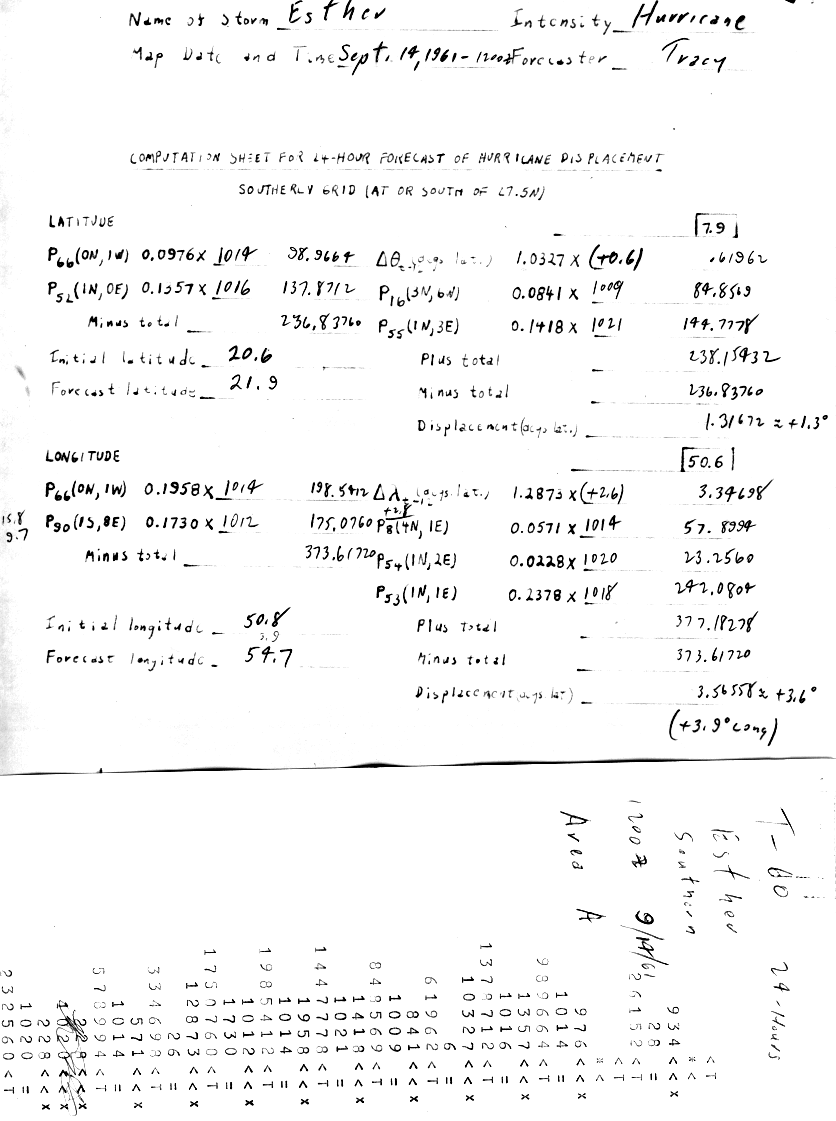 Name of Storm Esther Intensity Hurricane
Map Date and Time Sept. 14, 1961 - 1200z Forecaster Tracy
COMPUTATION SHEET FOR 24-HOUR FORECAST OF HURRICANE DISPLACEMENT
SOUTHERLY GRID (AT OR SOUTH OF 27.5N)
LATITUDE 7.9
P66(0N,1W) 0.0976 x 1014 98.9664 Δθ (degs. lat.) 1.0327 x (+0.6) .61962
P52(1N,0E) 0.1357 x 1016 137.8712 P16(3N,6W) 0.0841 x 1009 84.8569
Minus total 236.83760 P55(1N,3E) 0.1418 x 1021 144.7778
Initial latitude 20.6 Plus total 238.15432
Forecast latitude 21.9 Minus total 236.83760
Displacement (degs. lat.) 1.31672 ≈ +1.3°
LONGITUDE 50.6
P66(0N,1W) 0.1958 x 1014 198.5412 Δλ (degs. lat.) 1.2873 x (+2.6) 3.34698
+2.8
15.8
9.7
P90(1S,8E) 0.1730 x 1012 175.0760 P8(4N,1E) 0.0571 x 1014 57.8994
Minus total 373.61720 P54(1N,2E) 0.0228 x 1020 23.2560
P53(1N,1E) 0.2378 x 1018 242.0804
Initial longitude 50.8 Plus Total 377.18278
3.9
Forecast longitude 54.7 Minus total 373.61720
Displacement (degs. lat) 3.56558 ≈ +3.6°
(+3.9° Long)
T-60 24-Hours
Esther
Southern
1200z 9/14/61
Area A
<T
*<
934<<x
28=
26152<T
<T
*<
976<<x
1014=
989664<T
1357<<x
1016=
1378712<T
10327<<x
6=
61962<T
841<<x
1009=
848569<T
1418<<x
1021=
1447778<T
1958<<x
1014=
1985412<T
1730<<x
1012=
1750760<T
12873<<x
26=
334698<T
571<<x
1014=
578994<T
228<<x
1020=
232560<T